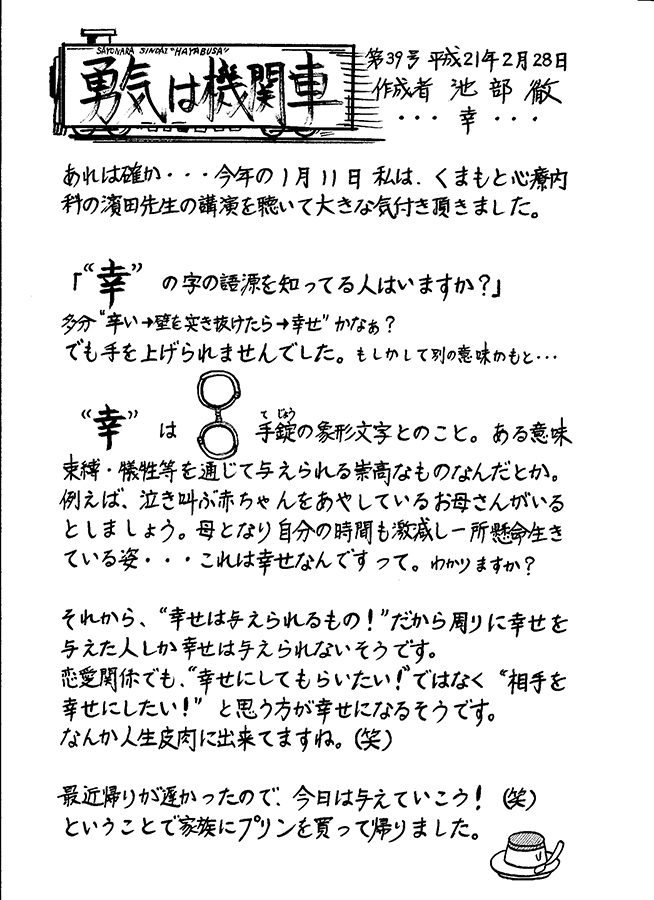 SAYONARA SINDAI "HAYABUSA"
勇気は機関車
第39号 平成21年2月28日
作成者 池部 徹
・・・ 幸 ・・・
あれは確か・・・今年の1月11日 私は、くまもと心療内
科の濱田先生の講演を聴いて大きな気付き頂きました。
「“幸” の字の語源を知ってる人はいますか?」
多分“辛い→壁を突き抜けたら→幸せ”かなぁ?
でも手を上げられませんでした。もしかして別の意味かもと・・・
“幸” は 手錠の象形文字とのこと。ある意味
てじょう
束縛・犠牲等を通じて与えられる崇高なものなんだとか。
例えば、泣き叫ぶ赤ちゃんをあやしているお母さんがいる
としましょう。母となり自分の時間も激減し一所懸命生き
ている姿・・・これは幸せなんですって。わかりますか?
それから、“幸せは与えられるもの!”だから周りに幸せを
与えた人しか幸せは与えられないそうです。
恋愛関係でも、“幸せにしてもらいたい!”ではなく “相手を
幸せにしたい!” と思う方が幸せになるそうです。
なんか人生皮肉に出来てますね。(笑)
最近帰りが遅かったので、今日は与えていこう! (笑)
ということで家族にプリンを買って帰りました。